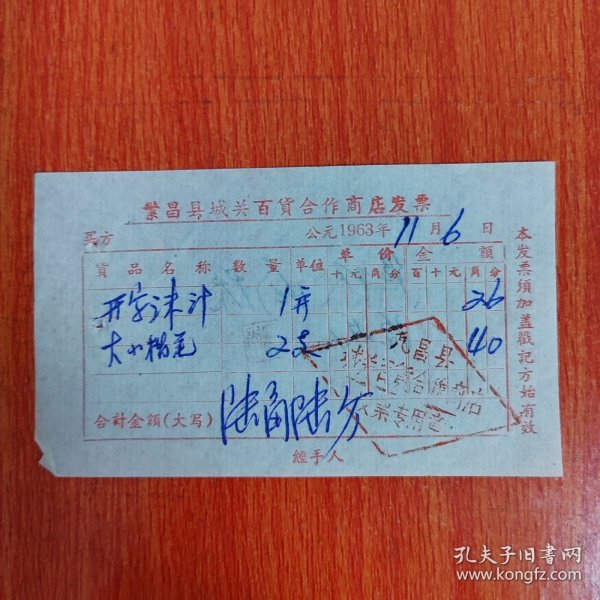 繁昌县城关百貨合作商店发票
买方 公元1963年11月6日
貨品名称 数量 单位 单价 金額
十元角分 百十元角分
1 26
大小楷笔 2支 40
合計金額(大写) 陆角陆分
經手人
本发票須加盖戳記方始有效
繁昌县
发票专用章
孔夫子旧书网
www.kongfz.com